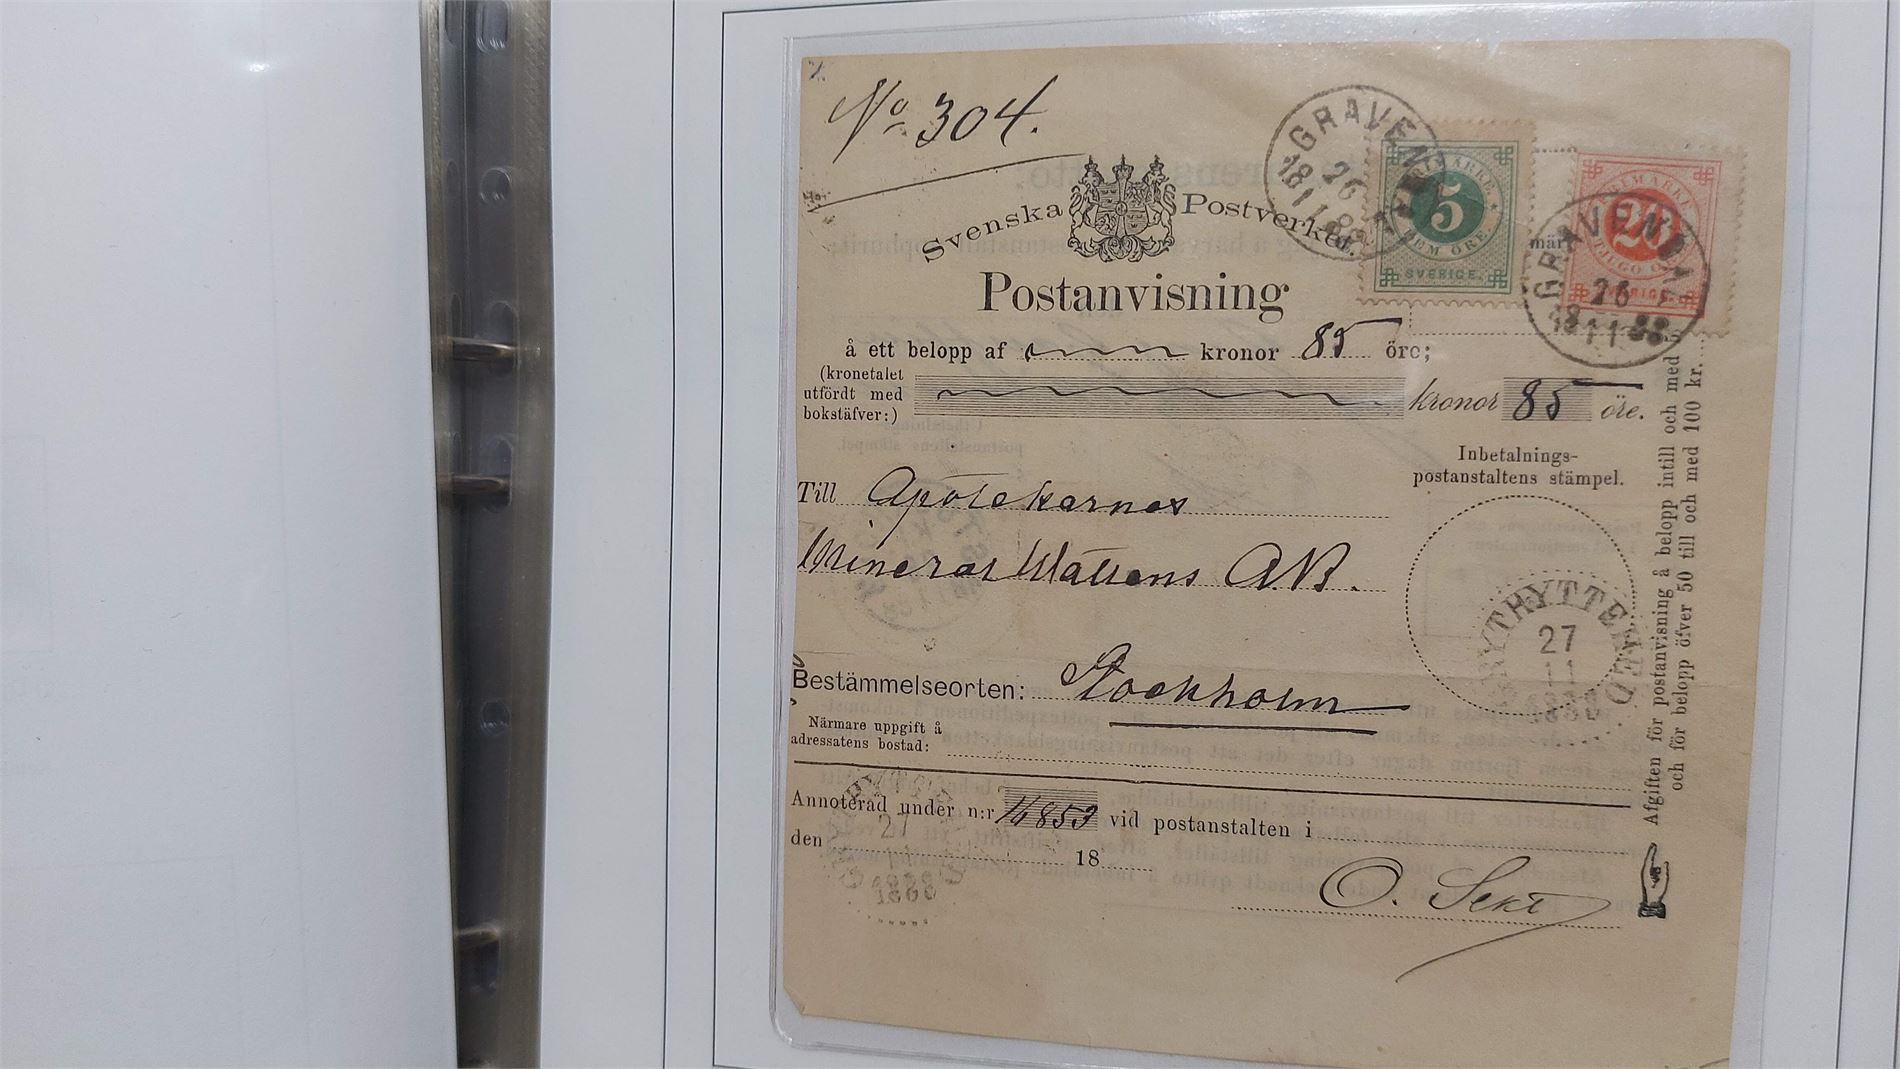 No 304.
GRAVENDAL
26
18 11 88
FRIMÄRKE
5
FEM ÖRE.
SVERIGE.
FRIMÄRKE
20
TJUGO ÖRE
SVERIGE.
GRAVENDAL
26
18 11 88
Svenska Postverket.
Postanvisning
å ett belopp af kronor 85 öre;
(kronetalet
utfördt med
bokstäfver:)
kronor 85 öre.
Inbetalnings-
postanstaltens stämpel.
Till Apotekarnes
Mineral Wattens A.B.
GRYTHYTTEHED
27
11
1888
Bestämmelseorten: Stockholm
Närmare uppgift å
adressatens bostad:
Annoterad under n:r 14853 vid postanstalten i
den 18
27
1888
O. Sekt
Afgiften för postanvisning å belopp intill och med 5
och för belopp öfver 50 till och med 100 kr.